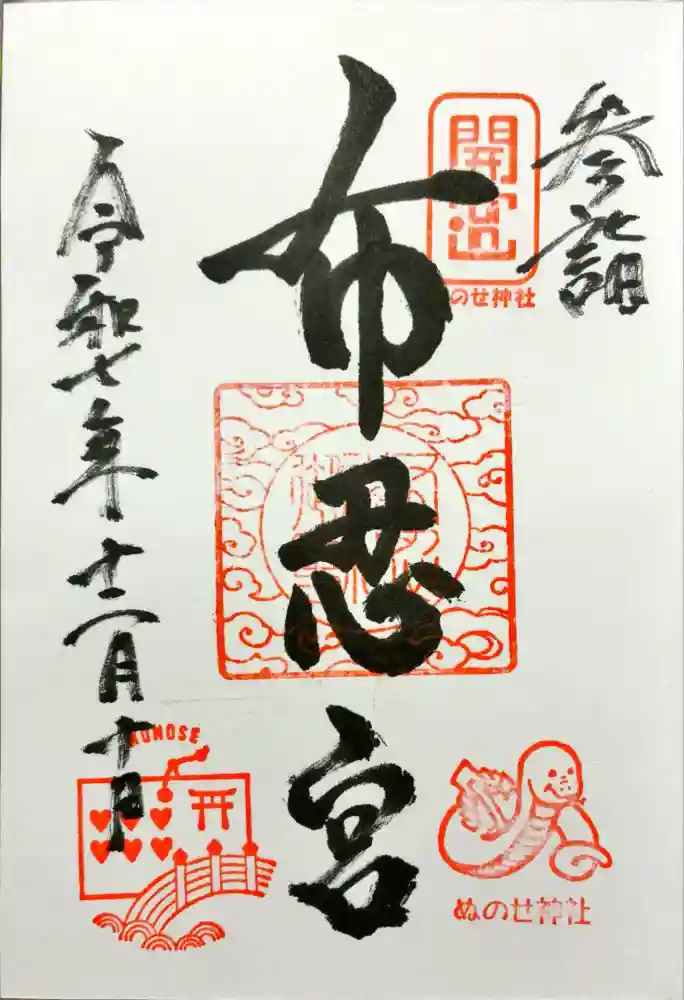 参詣
開運
のせ神社
布忍宮
令和七年十二月十日
NUNOSE
ぬのせ神社